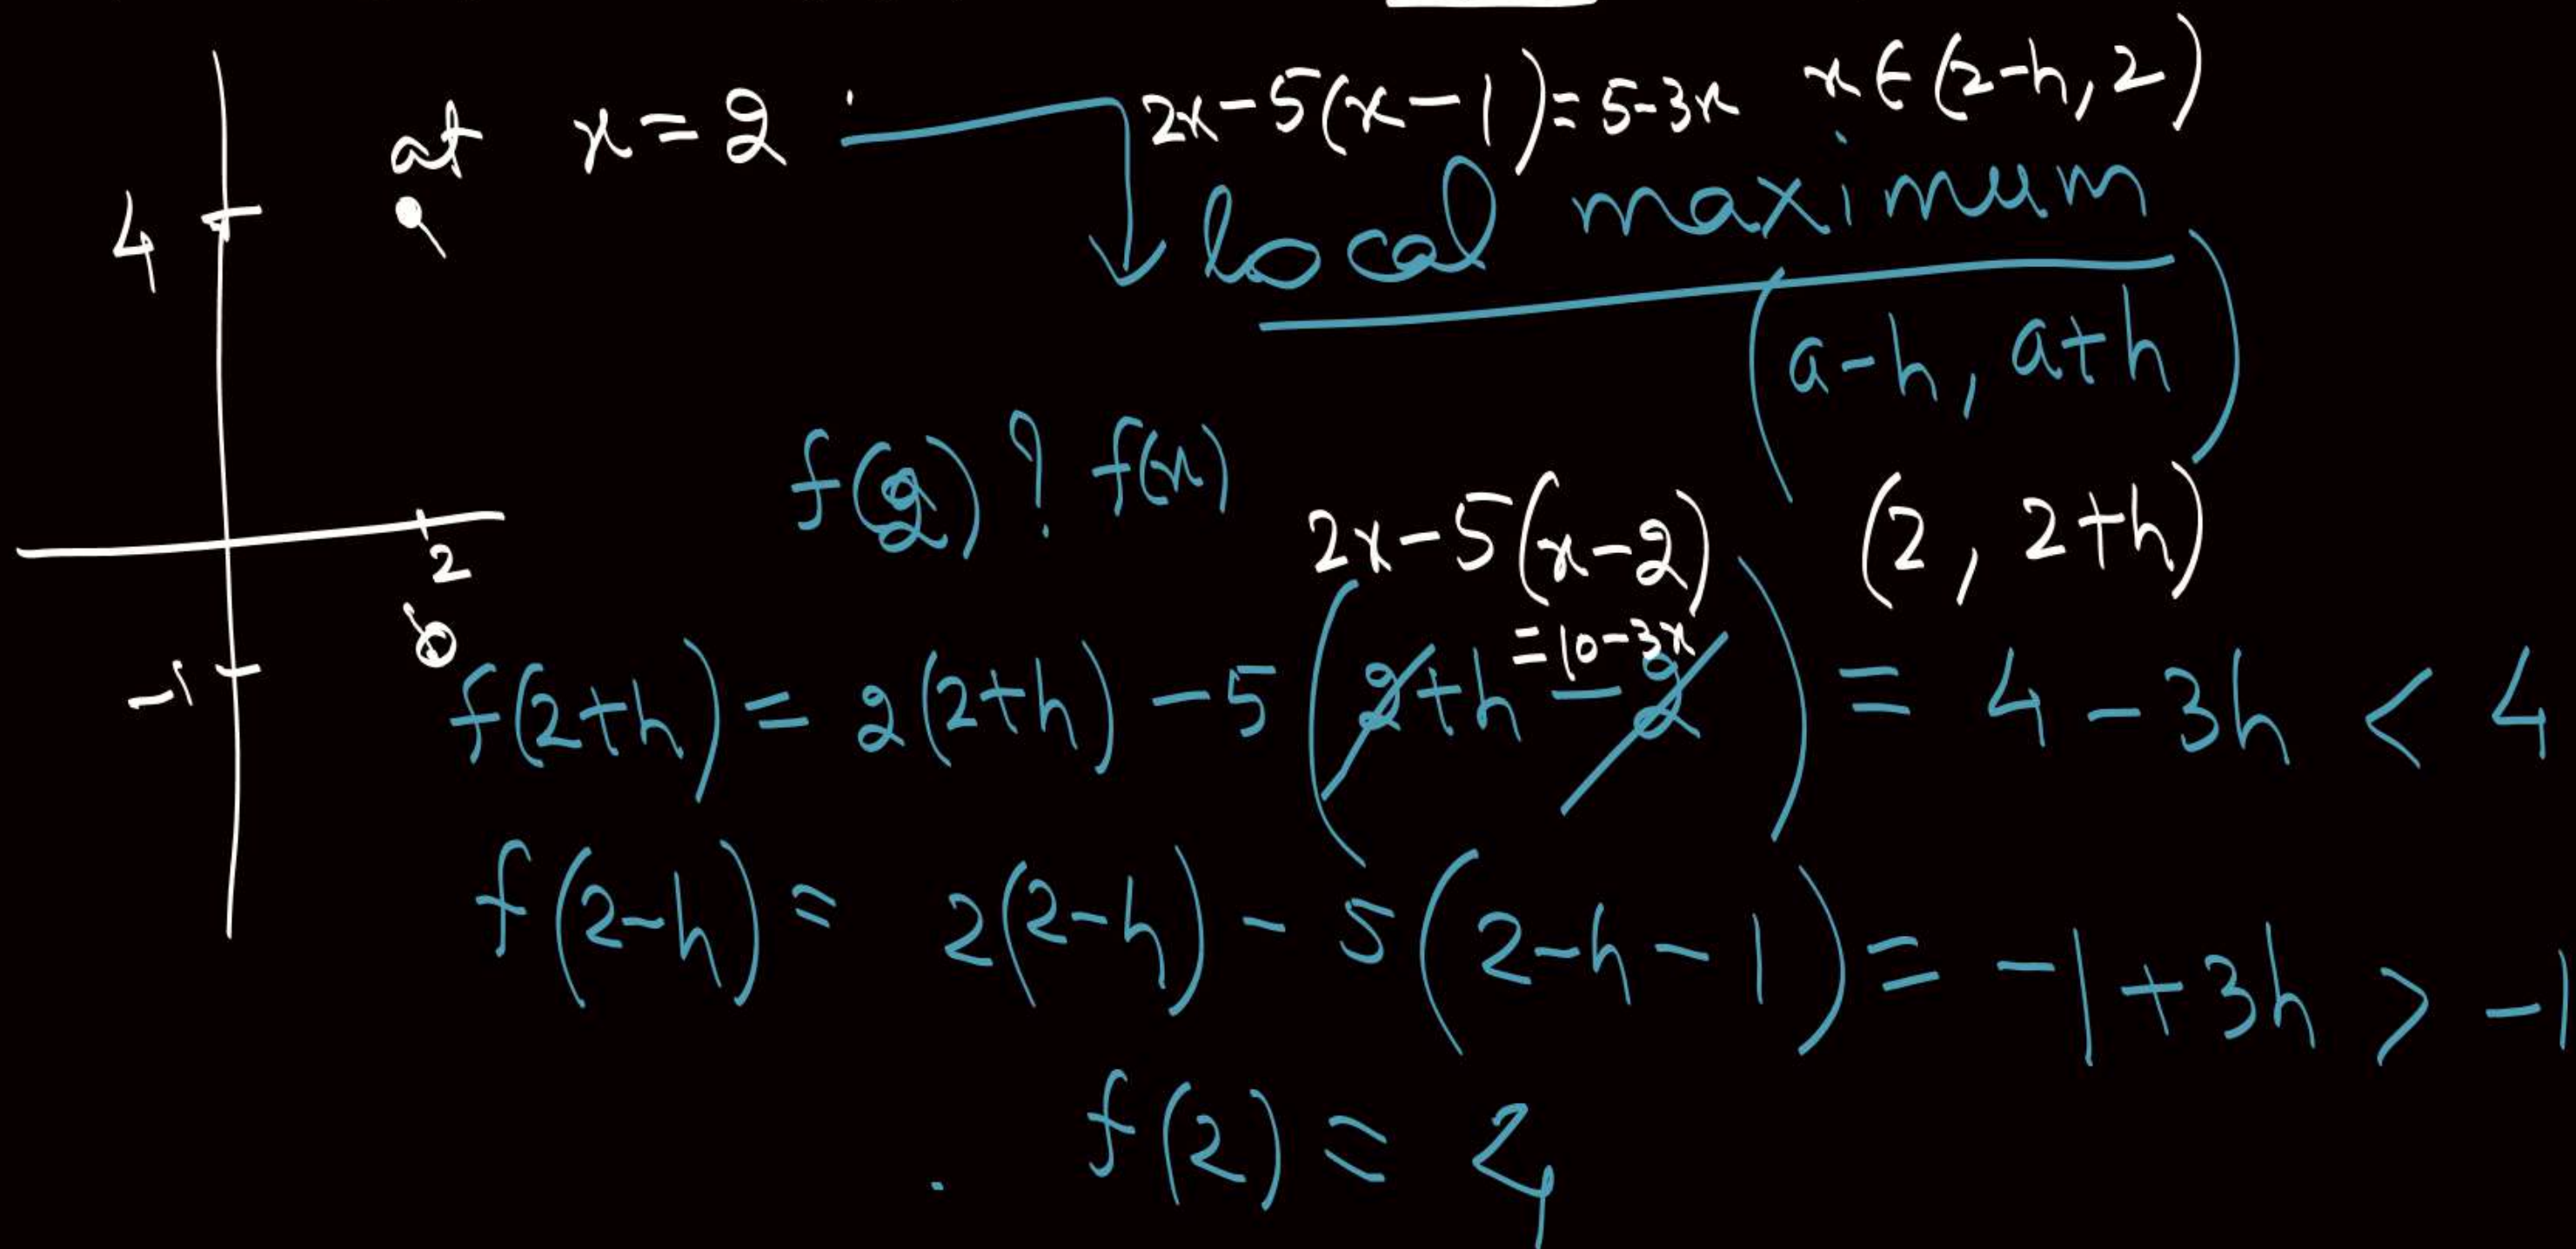 at x = 2 2x-5(x-1) = 5-3x x ∈ (2-h, 2)
4
local maximum
(a-h, a+h)
f(2) ? f(x)
2x-5(x-2) (2, 2+h)
2
= 10-3x
-1
f(2+h) = 2(2+h) - 5(2+h-2) = 4-3h < 4
f(2-h) = 2(2-h) - 5(2-h-1) = -1+3h > -1
f(2) = 4